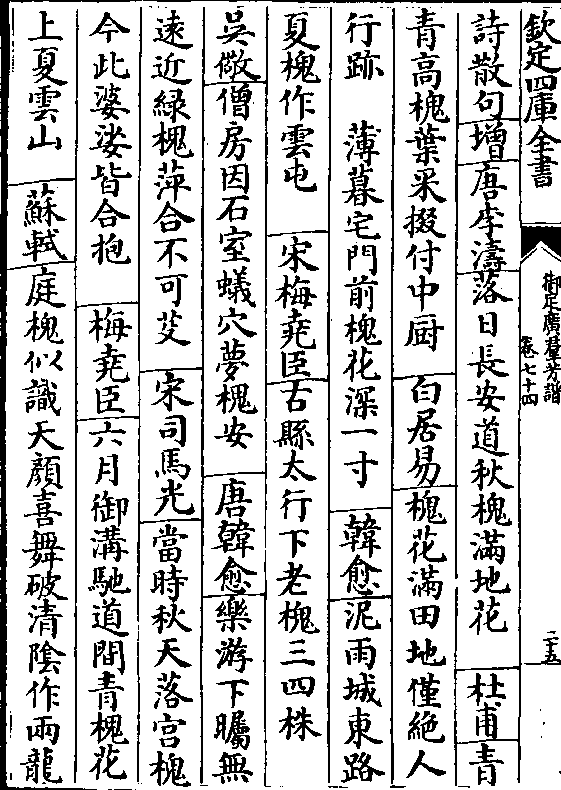 欽定四庫全書
御定廣羣芳譜
卷七十四
二十五
詩散句增唐李濤落日長安道秋槐滿地花 杜甫青
青高槐葉采掇付中厨 白居易槐花滿田地僅絕人
行跡 薄暮宅門前槐花深一寸 韓愈泥雨城東路
夏槐作雲屯 宋梅堯臣古縣太行下老槐三四株
吳儆僧房因石室蟻穴夢槐安 唐韓愈樂游下矚無
遠近緑槐萍合不可芟 宋司馬光當時秋天落宫槐
今此婆娑皆合抱 梅堯臣六月御溝馳道間青槐花
上夏雲山 蘇軾庭槐似識天顔喜舞破清陰作兩龍